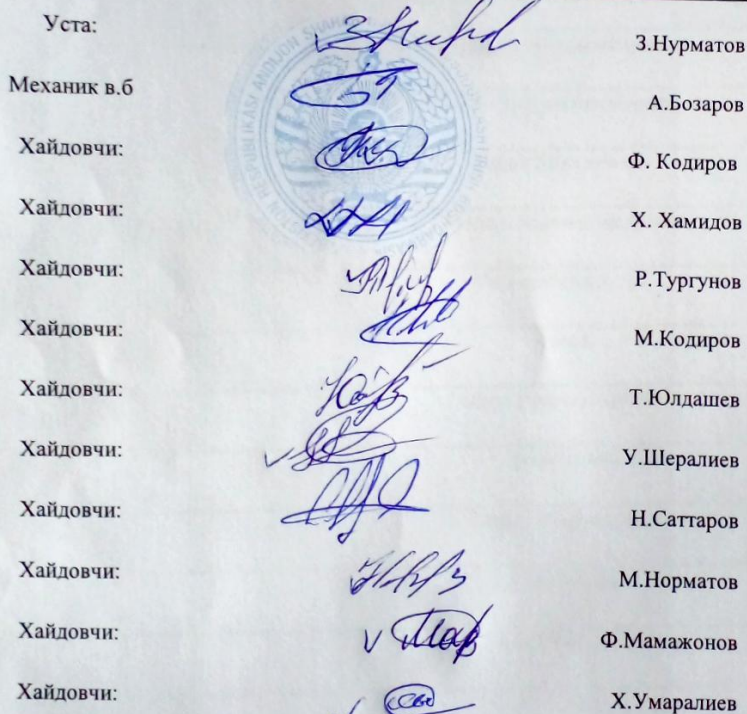 Уста: З.Нурматов
Механик в.б А.Бозаров
Хайдовчи: Ф. Кодиров
Хайдовчи: Х. Хамидов
Хайдовчи: Р.Тургунов
Хайдовчи: М.Кодиров
Хайдовчи: Т.Юлдашев
Хайдовчи: У.Шералиев
Хайдовчи: Н.Саттаров
Хайдовчи: М.Норматов
Хайдовчи: Ф.Мамажонов
Хайдовчи: Х.Умаралиев